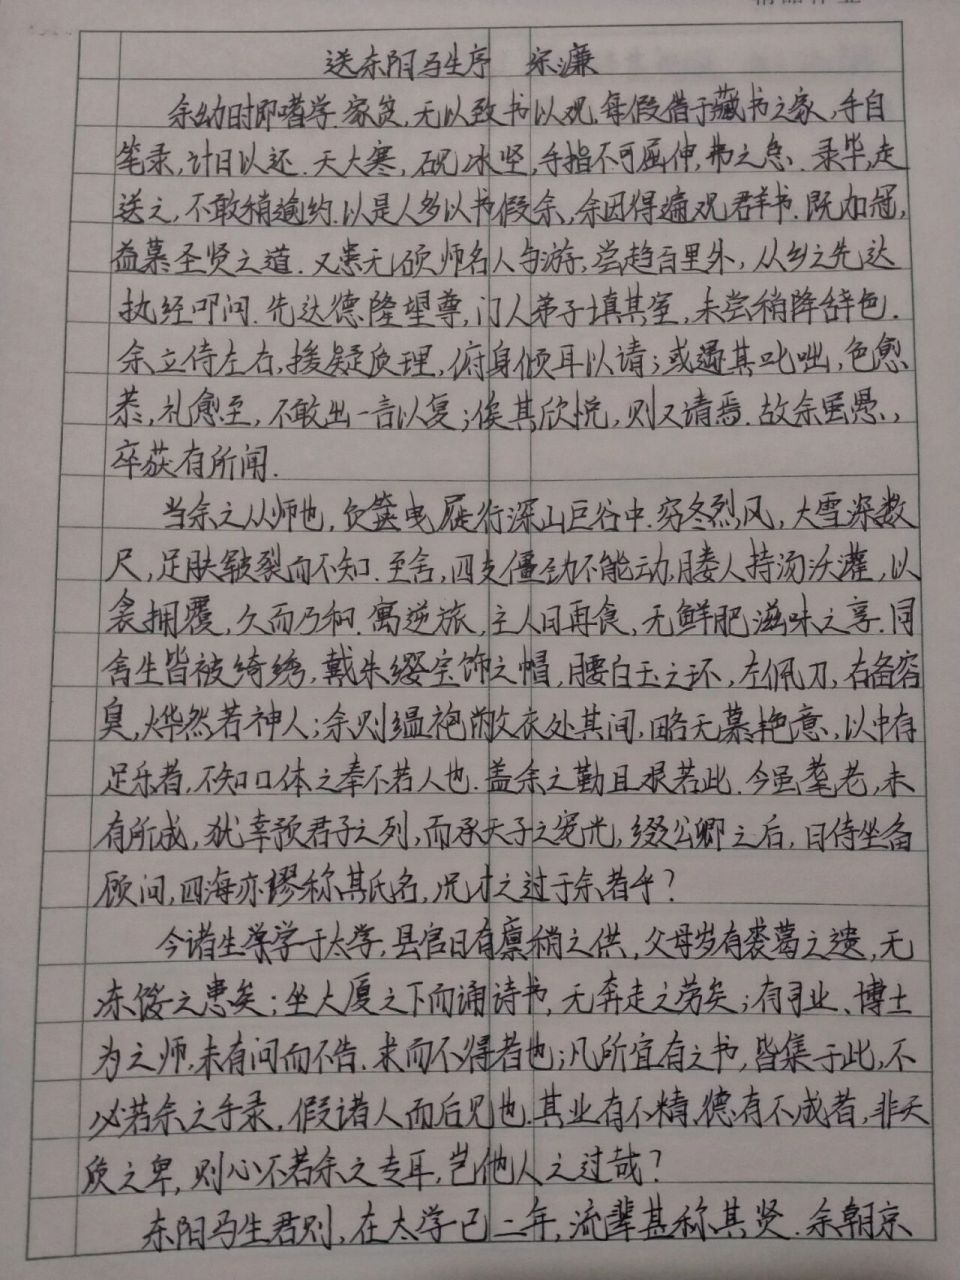 送东阳马生序 宋濂
余幼时即嗜学.家贫,无以致书以观.每假借于藏书之家,手自
笔录,计日以还.天大寒,砚冰坚,手指不可屈伸,弗之怠.录毕,走
送之,不敢稍逾约.以是人多以书假余,余因得遍观群书.既加冠,
益慕圣贤之道.又患无硕师名人与游,尝趋百里外,从乡之先达
执经叩问.先达德隆望尊,门人弟子填其室,未尝稍降辞色.
余立侍左右,援疑质理,俯身倾耳以请;或遇其叱咄,色愈
恭,礼愈至,不敢出一言以复;俟其欣悦,则又请焉.故余虽愚,
卒获有所闻.
当余之从师也,负箧曳屣行深山巨谷中.穷冬烈风,大雪深数
尺,足肤皲裂而不知.至舍,四支僵劲不能动,媵人持汤沃灌,以
衾拥覆,久而乃和.寓逆旅,主人日再食,无鲜肥滋味之享.同
舍生皆被绮绣,戴朱缨宝饰之帽,腰白玉之环,左佩刀,右备容
臭,烨然若神人;余则缊袍敝衣处其间,略无慕艳意,以中有
足乐者,不知口体之奉不若人也.盖余之勤且艰若此.今虽耄老,未
有所成,犹幸预君子之列,而承天子之宠光,缀公卿之后,日侍坐备
顾问,四海亦谬称其氏名,况才之过于余者乎?
今诸生学于太学,县官日有廪稍之供,父母岁有裘葛之遗,无
冻馁之患矣;坐大厦之下而诵诗书,无奔走之劳矣;有司业、博士
为之师,未有问而不告.求而不得者也;凡所宜有之书,皆集于此,不
必若余之手录,假诸人而后见也.其业有不精,德有不成者,非天
质之卑,则心不若余之专耳,岂他人之过哉?
东阳马生君则,在太学已二年,流辈甚称其贤.余朝京